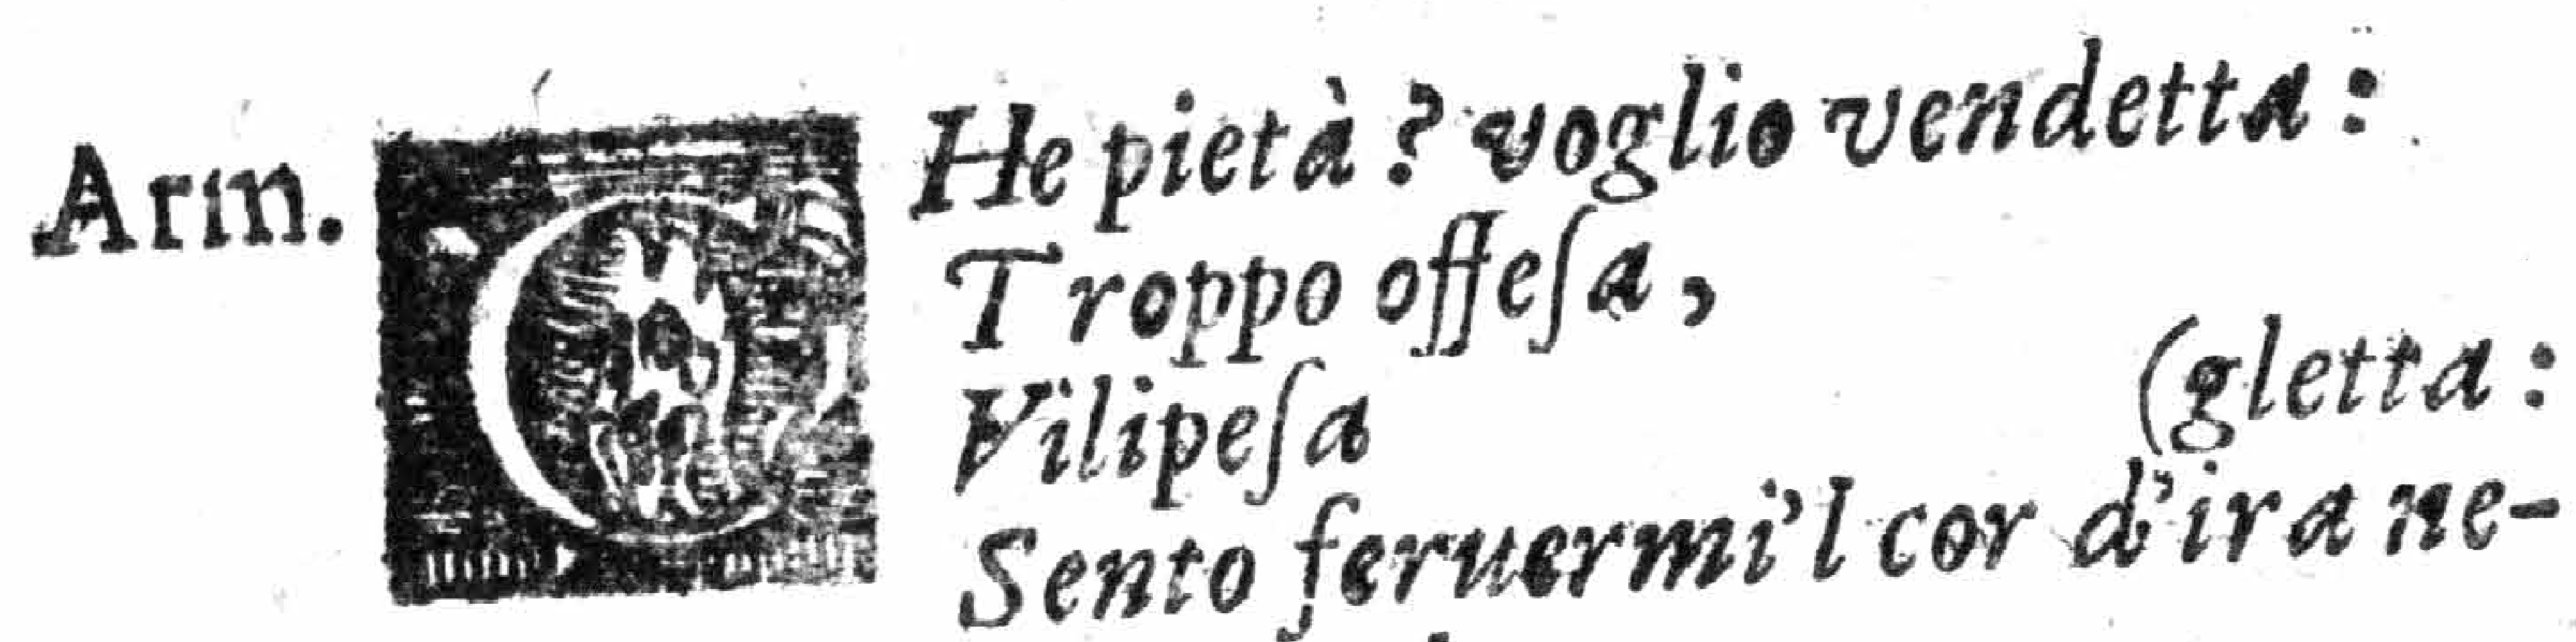 Arm. CHe pietà? voglio vendetta:
Troppo offeſa,
Vilipeſa
(gletta:
Sento feruermi'l cor d'ira ne-